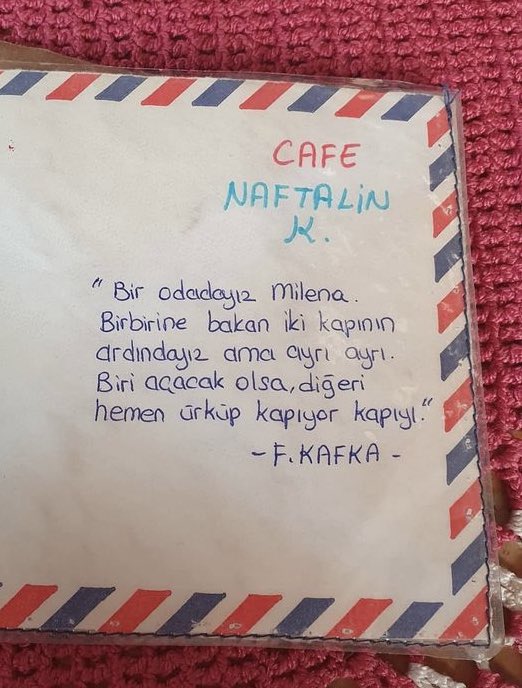 CAFE
NAFTALİN
K.
“ Bir odadayız Milena.
Birbirine bakan iki kapının
ardındayız ama ayrı ayrı.
Biri açacak olsa, diğeri
hemen ürküp kapıyor kapıyı.”
- F. KAFKA -